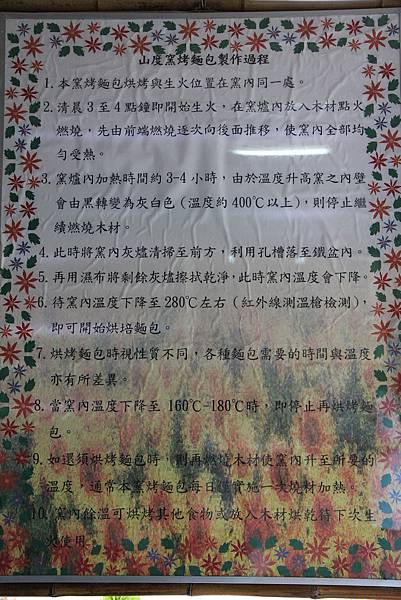 山度窯烤麵包製作過程
1. 本窯烤麵包烘烤與生火位置在窯內同一處。
2. 清晨3至4點鐘即開始生火，在窯爐內放入木材點火
燃燒，先由前端燃燒逐次向後面推移，使窯內全部均
勻受熱。
3. 窯爐內加熱時間約3-4小時，由於溫度升高窯之內壁
會由黑轉變為灰白色（溫度約400℃以上），則停止繼
續燃燒木材。
4. 此時將窯內灰燼清掃至前方，利用孔槽落至鐵盆內。
5. 再用濕布將剩餘灰燼擦拭乾淨，此時窯內溫度會下降。
6. 待窯內溫度下降至280℃左右（紅外線測溫槍檢測），
即可開始烘培麵包。
7. 烘烤麵包時視性質不同，各種麵包需要的時間與溫度
亦有所差異。
8. 當窯內溫度下降至160℃-180℃時，即停止再烘烤麵
包。
9. 如還須烘烤麵包時，則再燃燒木材使窯內升至所要的
溫度，通常本窯烤麵包每日僅實施一次燒材加熱。
10. 窯內餘溫可烘烤其他食物或放入木材烘乾待下次生
火使用。